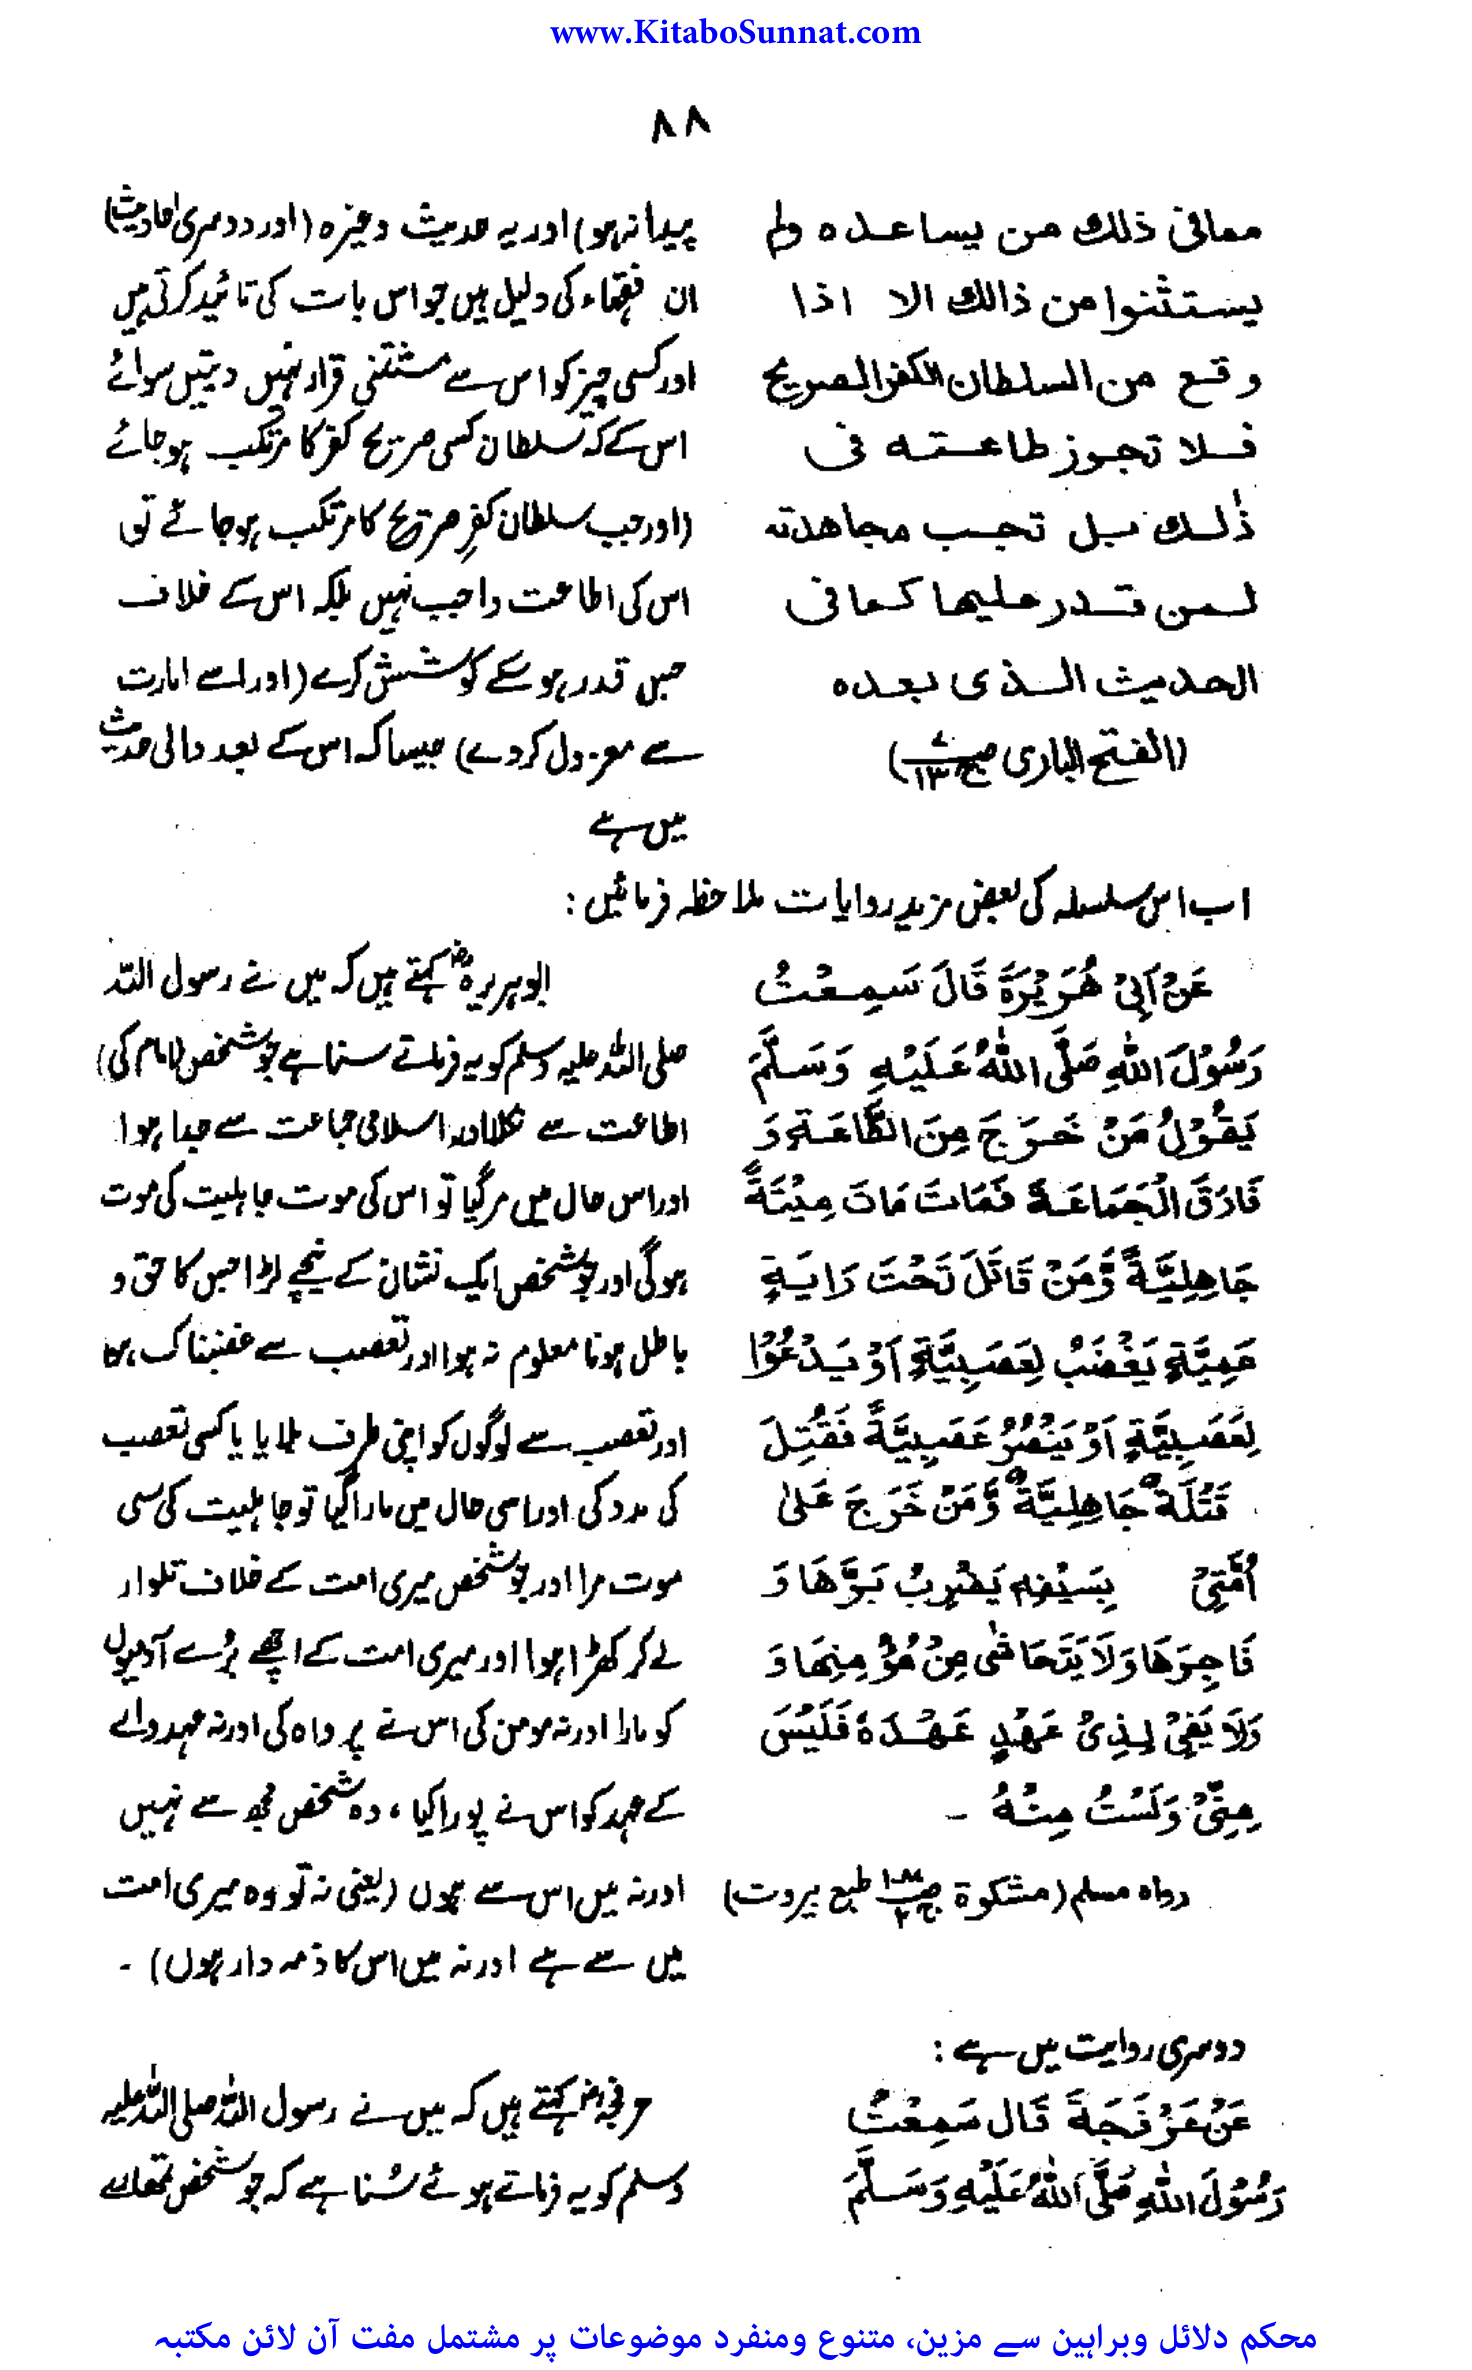 www.KitaboSunnat.com
۸۸
ممافی ذلك من یساعده ولم
یستثنوا من ذالك الا اذا
وقع من السلطان الكفر الصریح
فلا تجوز طاعته فی
ذٰلك بل تجب مجاهدته
لمن قدر علیها كما فی
الحدیث الذی بعده
(الفتح الباری ص۷ ج۱۳)
پیدا نہ ہو) اور یہ حدیث وغیرہ (اور دوسری احادیث)
ان فقہاء کی دلیل ہیں جو اس بات کی تائید کرتی ہیں
اور کسی چیز کو اس سے مستثنیٰ قرار نہیں دیتیں سوائے
اس کے کہ سلطان کسی صریح کفر کا مرتکب ہو جائے
(اور جب سلطان کفرِ صریح کا مرتکب ہو جائے تو
اس کی اطاعت واجب نہیں بلکہ اس کے خلاف
جس قدر ہو سکے کوشش کرے (اور اسے امارت
سے معزول کر دے) جیسا کہ اس کے بعد والی حدیث
میں ہے
اب اس سلسلہ کی بعض مزید روایات ملاحظہ فرمائیں:
عَنْ اَبِیْ هُرَیْرَةَ قَالَ سَمِعْتُ
رَسُوْلَ اللّٰهِ صَلَّی اللّٰهُ عَلَیْهِ وَسَلَّمَ
یَقُوْلُ مَنْ خَرَجَ مِنَ الطَّاعَةِ وَ
فَارَقَ الْجَمَاعَةَ فَمَاتَ مَاتَ مِیْتَةً
جَاهِلِیَّةً وَّمَنْ قَاتَلَ تَحْتَ رَایَةٍ
عَمِیَّةٍ یَغْضَبُ لِعَصَبِیَّةٍ اَوْ یَدْعُوْا
لِعَصَبِیَّةٍ اَوْ یَنْصُرُ عَصَبِیَّةً فَقُتِلَ
قَتْلَةٌ جَاهِلِیَّةٌ وَّمَنْ خَرَجَ عَلٰی
اُمَّتِیْ بِسَیْفِهٖ یَضْرِبُ بَرَّهَا وَ
فَاجِرَهَا وَلَا یَتَحَاشٰی مِنْ مُؤْمِنِهَا وَ
وَلَا یَفِیْ لِذِیْ عَهْدٍ عَهْدَهٗ فَلَیْسَ
مِنِّیْ وَلَسْتُ مِنْهُ ـ
رواہ مسلم (مشکوۃ ج۲ طبع بیروت)
ابو ہریرہؓ کہتے ہیں کہ میں نے رسول اللہ
صلی اللہ علیہ وسلم کو یہ فرماتے سنا ہے جو شخص (امام کی)
اطاعت سے نکلا اور اسلامی جماعت سے جدا ہوا
اور اس حال میں مر گیا تو اس کی موت جاہلیت کی موت
ہوگی اور جو شخص ایک نشان کے نیچے لڑا جس کا حق و
باطل ہونا معلوم نہ ہوا اور تعصب سے غضبناک ہوا
اور تعصب سے لوگوں کو اپنی طرف بلایا یا کسی تعصب
کی مدد کی اور اسی حال میں مارا گیا تو جاہلیت کی سی
موت مرا اور جو شخص میری امت کے خلاف تلوار
لے کر کھڑا ہوا اور میری امت کے اچھے بُرے آدمیوں
کو مارا اور نہ مومن کی اس نے پرواہ کی اور نہ عہد والے
کے عہد کو اس نے پورا کیا، وہ شخص مجھ سے نہیں
اور نہ میں اس سے ہوں (یعنی نہ تو وہ میری امت
میں سے ہے اور نہ میں اس کا ذمہ دار ہوں) ۔
دوسری روایت میں ہے:
عَنْ عَرْفَجَةَ قَال سَمِعْتُ
رَسُوْلَ اللّٰهِ صَلَّی اللّٰهُ عَلَیْهِ وَسَلَّمَ
عرفجہؓ کہتے ہیں کہ میں نے رسول اللہ صلی اللہ علیہ
وسلم کو یہ فرماتے ہوئے سُنا ہے کہ جو شخص تمھارے
محکم دلائل وبراہین سے مزین، متنوع ومنفرد موضوعات پر مشتمل مفت آن لائن مکتبہ